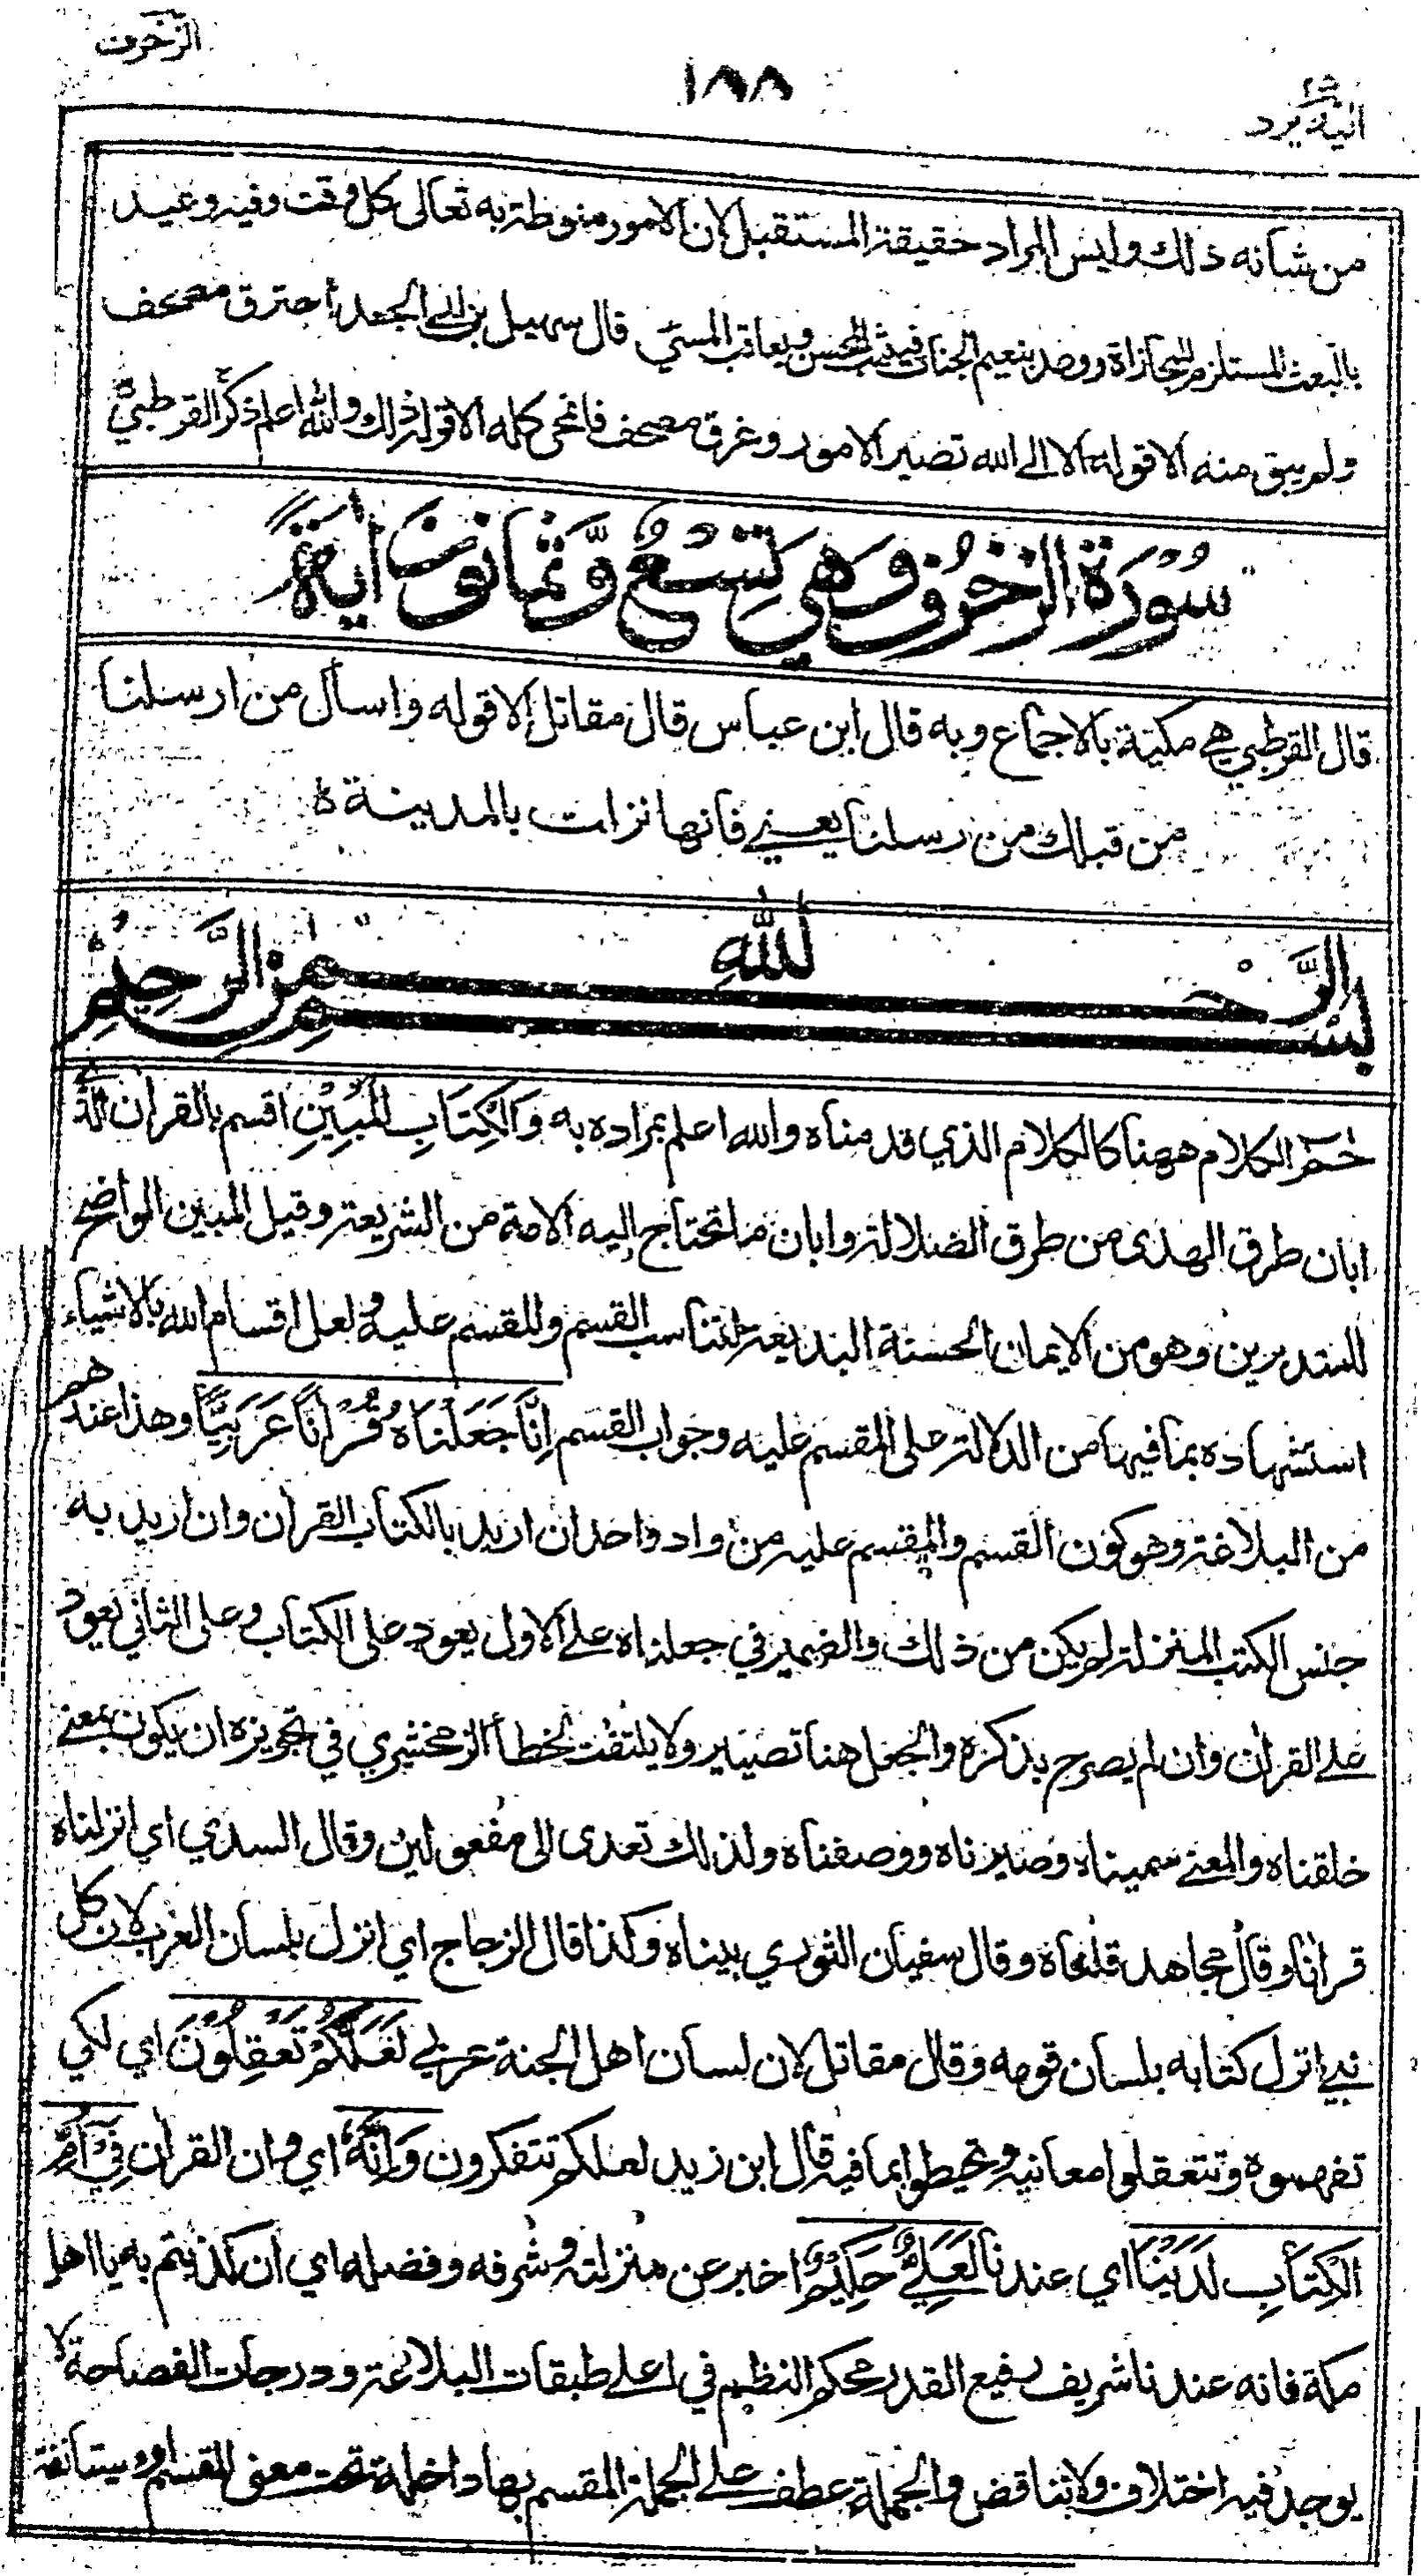 الزخرف
١٨٨
٢٥
اليه يرد
من شانه ذلك وليس المراد حقيقة المستقبل لان الامور منوطة به تعالى كل وقت وفيه وعيد
بالبعث المستلزم للمجازاة ووعد بنعيم الجنات فيثيب المحسن ويعاقب المسيئ قال سهيل بن ابي الجعد احترق مصحف
ولم يبق منه الا قوله الا الى الله تصير الامور وغرق مصحف فانمحى كله الا قوله ذلك والله اعلم ذكره القرطبي
سُوْرَةُ الزخرف وَهِيَ تِسْعٌ وَّثَمَانُونَ اٰيَةً
قال القرطبي هي مكية بالاجماع وبه قال ابن عباس قال مقاتل الا قوله واسأل من ارسلنا
من قبلك من رسلنا يعني فانها نزلت بالمدينة
بسم الله الرَّحمن الرَّحِيْمِ
حٰم الكلام ههنا كالكلام الذي قدمناه والله اعلم بمراده به وَالْكِتَابِ الْمُبِيْنِ اقسم بالقران الذي
ابان طرق الهدى من طرق الضلالة وابان ما تحتاج اليه الامة من الشريعة وقيل المبين الواضح
للمتدبرين وهو من الايمان الحسنة البديعة لتناسب القسم والمقسم عليه ولعل اقسام الله بالاشياء
استشهاده بما فيها من الدلالة على المقسم عليه وجواب القسم اِنَّا جَعَلْنَاهُ قُرْاٰنًا عَرَبِيًّا وهذا عندهم
من البلاغة وهو كون القسم والمقسم عليه من واد واحد ان اريد بالكتاب القران وان اريد به
جنس الكتب المنزلة لم يكن من ذلك والضمير في جعلناه على الاول يعود على الكتاب وعلى الثاني يعود
على القران وان لم يصرح بذكره والجعل هنا تصيير ولا يلتفت لخطأ الزمخشري في تجويزه ان يكون بمعنى
خلقناه والمعنى سميناه وصيرناه ووصفناه ولذلك تعدى الى مفعولين وقال السدي اي انزلناه
قرانا وقال مجاهد قلناه وقال سفيان الثوري بيناه وكذا قال الزجاج اي انزل بلسان العرب لان كل
نبي انزل كتابه بلسان قومه وقال مقاتل لان لسان اهل الجنة عربي لَعَلَّكُمْ تَعْقِلُوْنَ اي لكي
تفهموه وتتعقلوا معانيه وتحيطوا بما فيه قال ابن زيد لعلكم تتفكرون وَاِنَّهُ اي وان القران فِيْ اُمِّ
الْكِتَابِ لَدَيْنَا اي عندنا لَعَلِيٌّ حَكِيْمٌ اخبر عن منزلته وشرفه وفضله اي ان كذبتم به يا اهل
مكة فانه عندنا شريف رفيع القدر محكم النظم في اعلى طبقات البلاغة ودرجات الفصاحة لا
يوجد فيه اختلاف ولا تناقض والجملة عطف على الجملة المقسم بها داخلة تحت معنى القسم او مستانفة